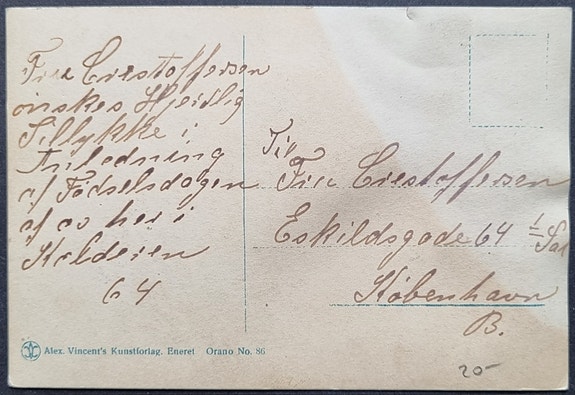 Frue Crestoffersen
ønskes Hjertlig
Tillykke i
Anledning
af Fødselsdagen
af os her i
Kalderen
64
Til
Frue Crestoffersen
Eskildsgade 64 1/ Sal
København
B.
Alex. Vincent's Kunstforlag. Eneret Orano No. 86
20-